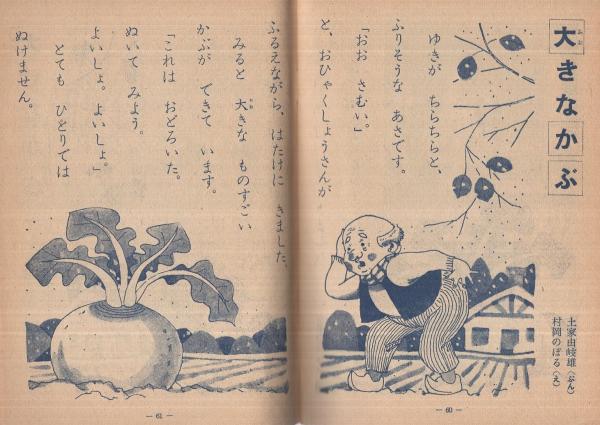 大きなかぶ
おお
土家由岐雄〈ぶん〉
村岡のぼる〈え〉
ゆきが ちらちらと、
ふりそうな あさです。
「おお さむい。」
と、おひゃくしょうさんが
— 60 —
ふるえながら、はたけに きました。
みると 大きな ものすごい
おお
かぶが できて います。
「これは おどろいた。
ぬいて みよう。
よいしょ。よいしょ。」
とても ひとりでは
ぬけません。
— 61 —